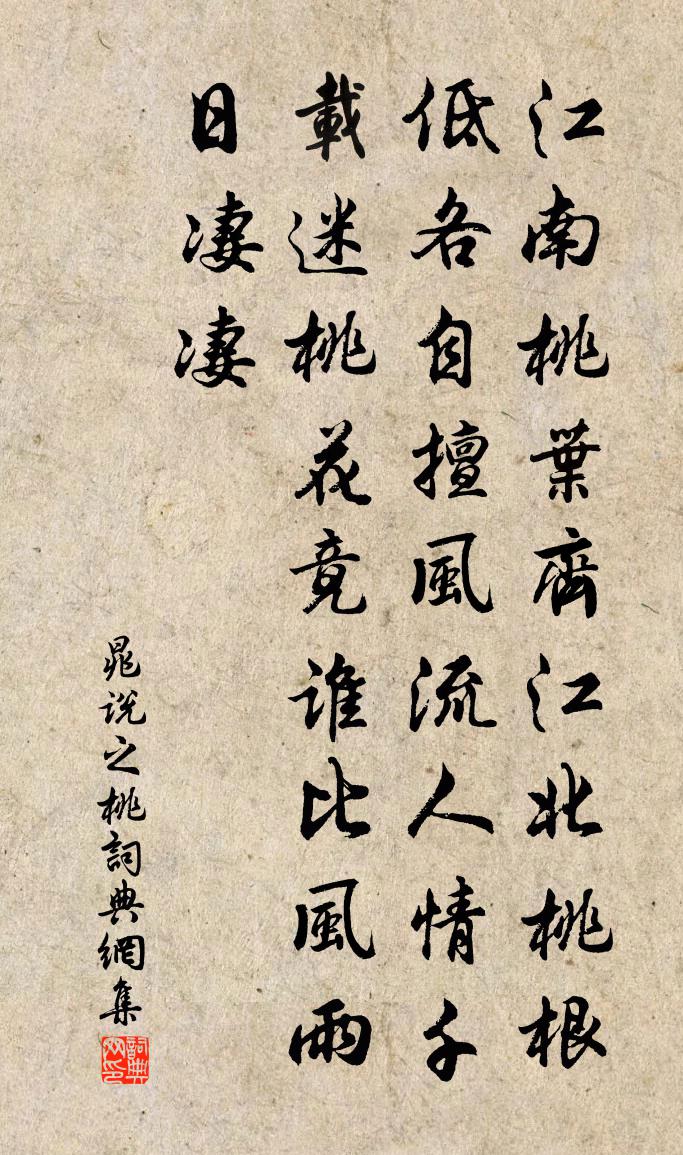 江南桃葉齊江北桃根
低各自擅風流人情千
載迷桃花竟誰比風雨
日淒淒
晁說之桃詞典網集
詞典網印